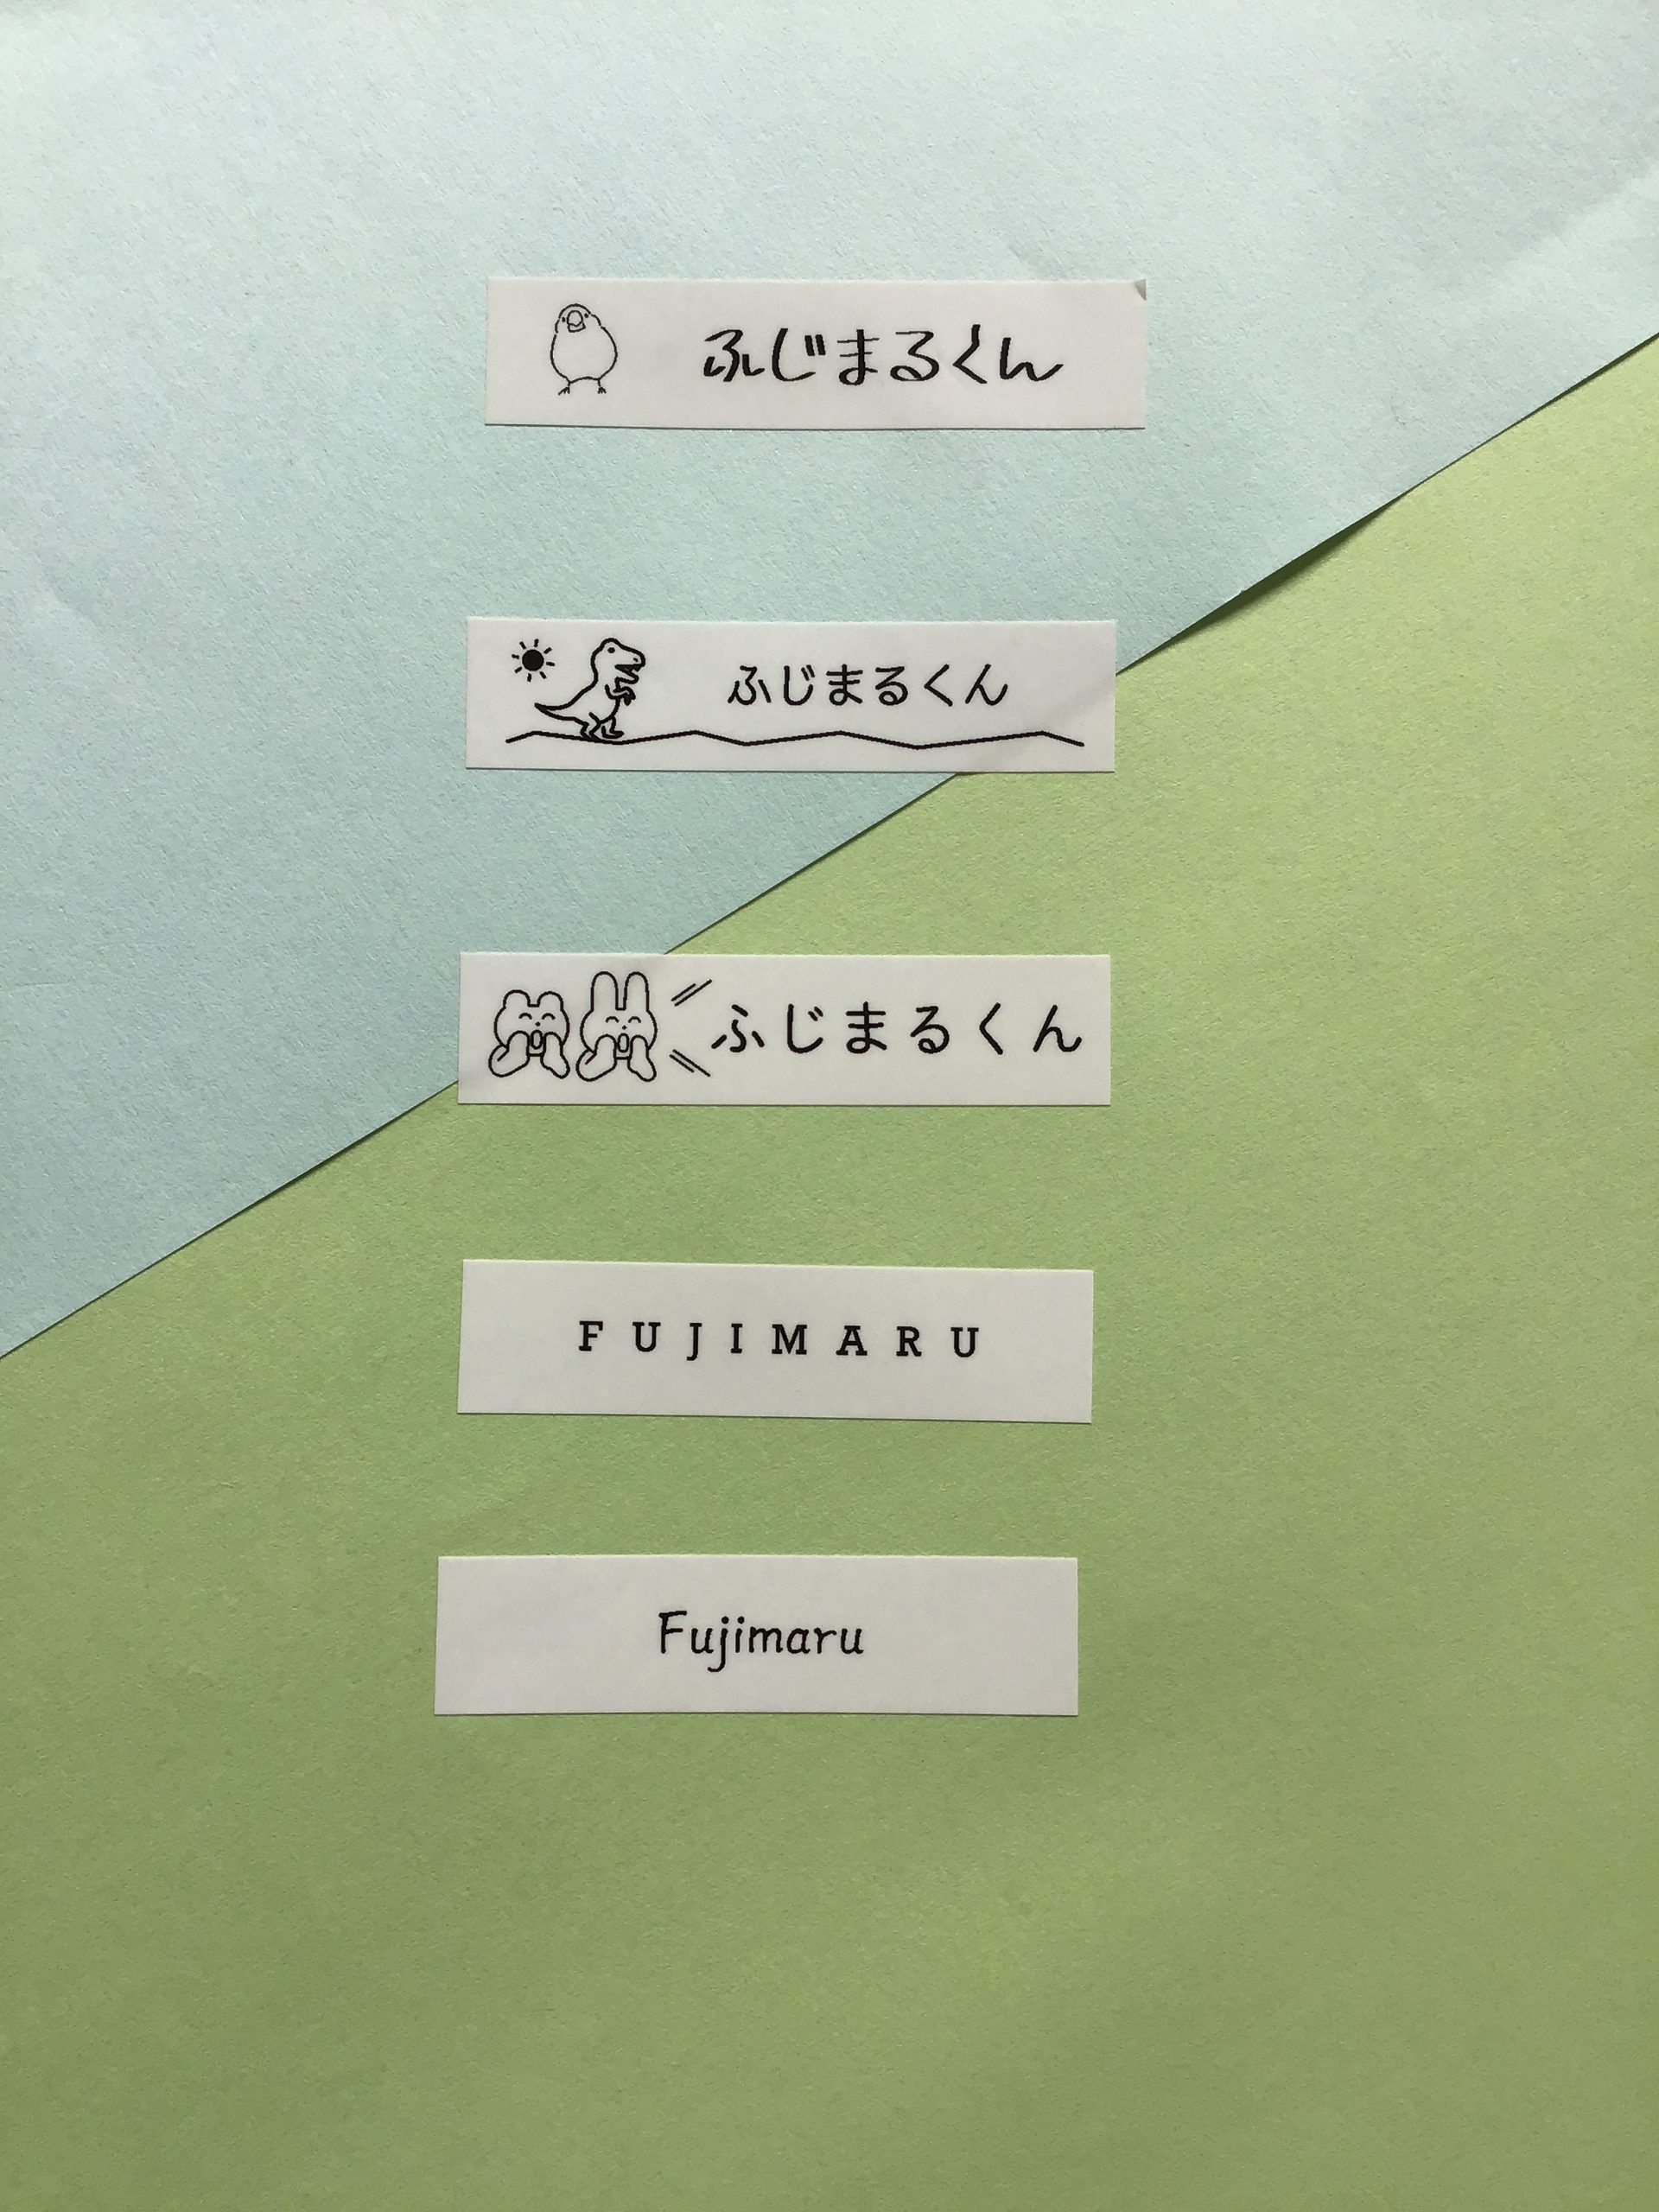 ふじまるくん
ふじまるくん
ふじまるくん
FUJIMARU
Fujimaru